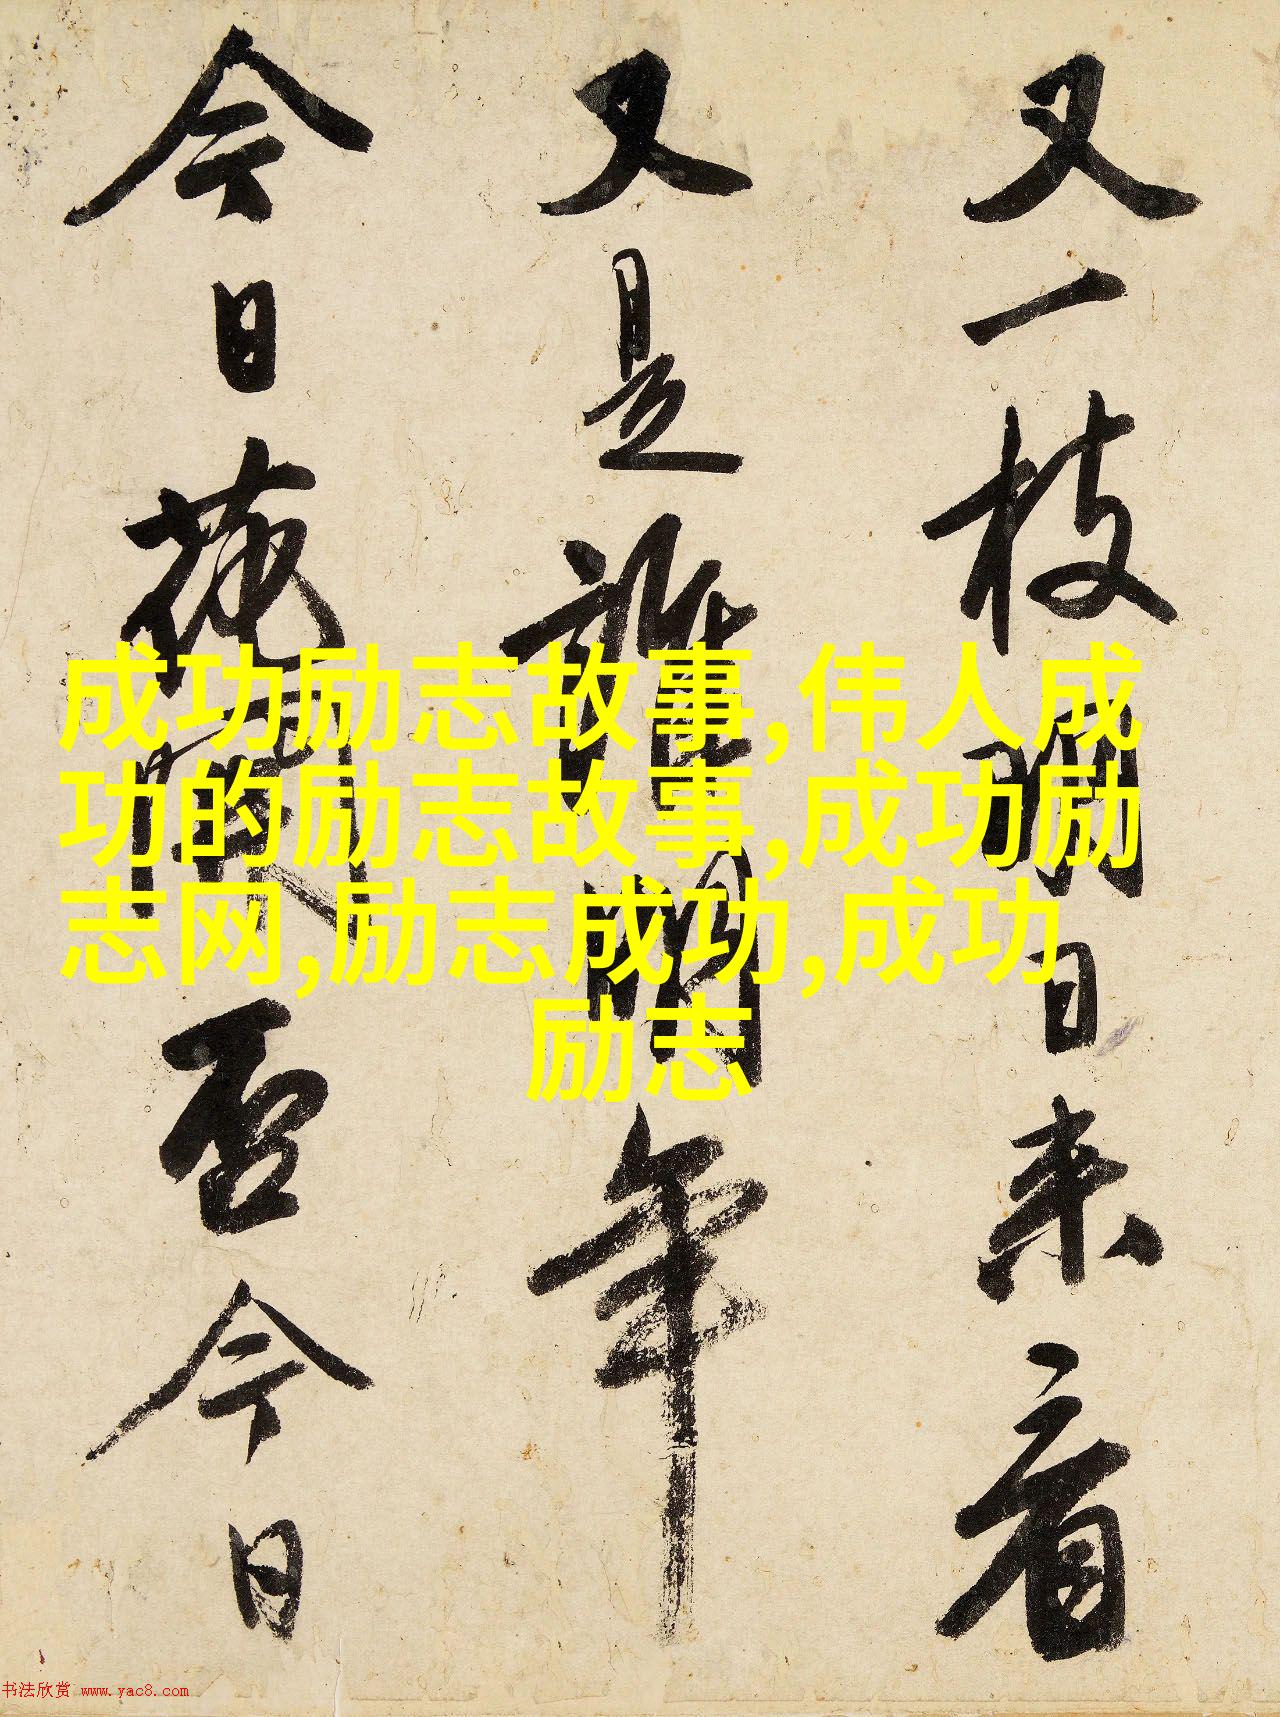 又一枝明日来看
又是誰明年
今日否今日
成功励志故事,伟人成
功的励志故事,成功励
志网,励志成功,成功
励志
书法欣赏 www.yac8.com